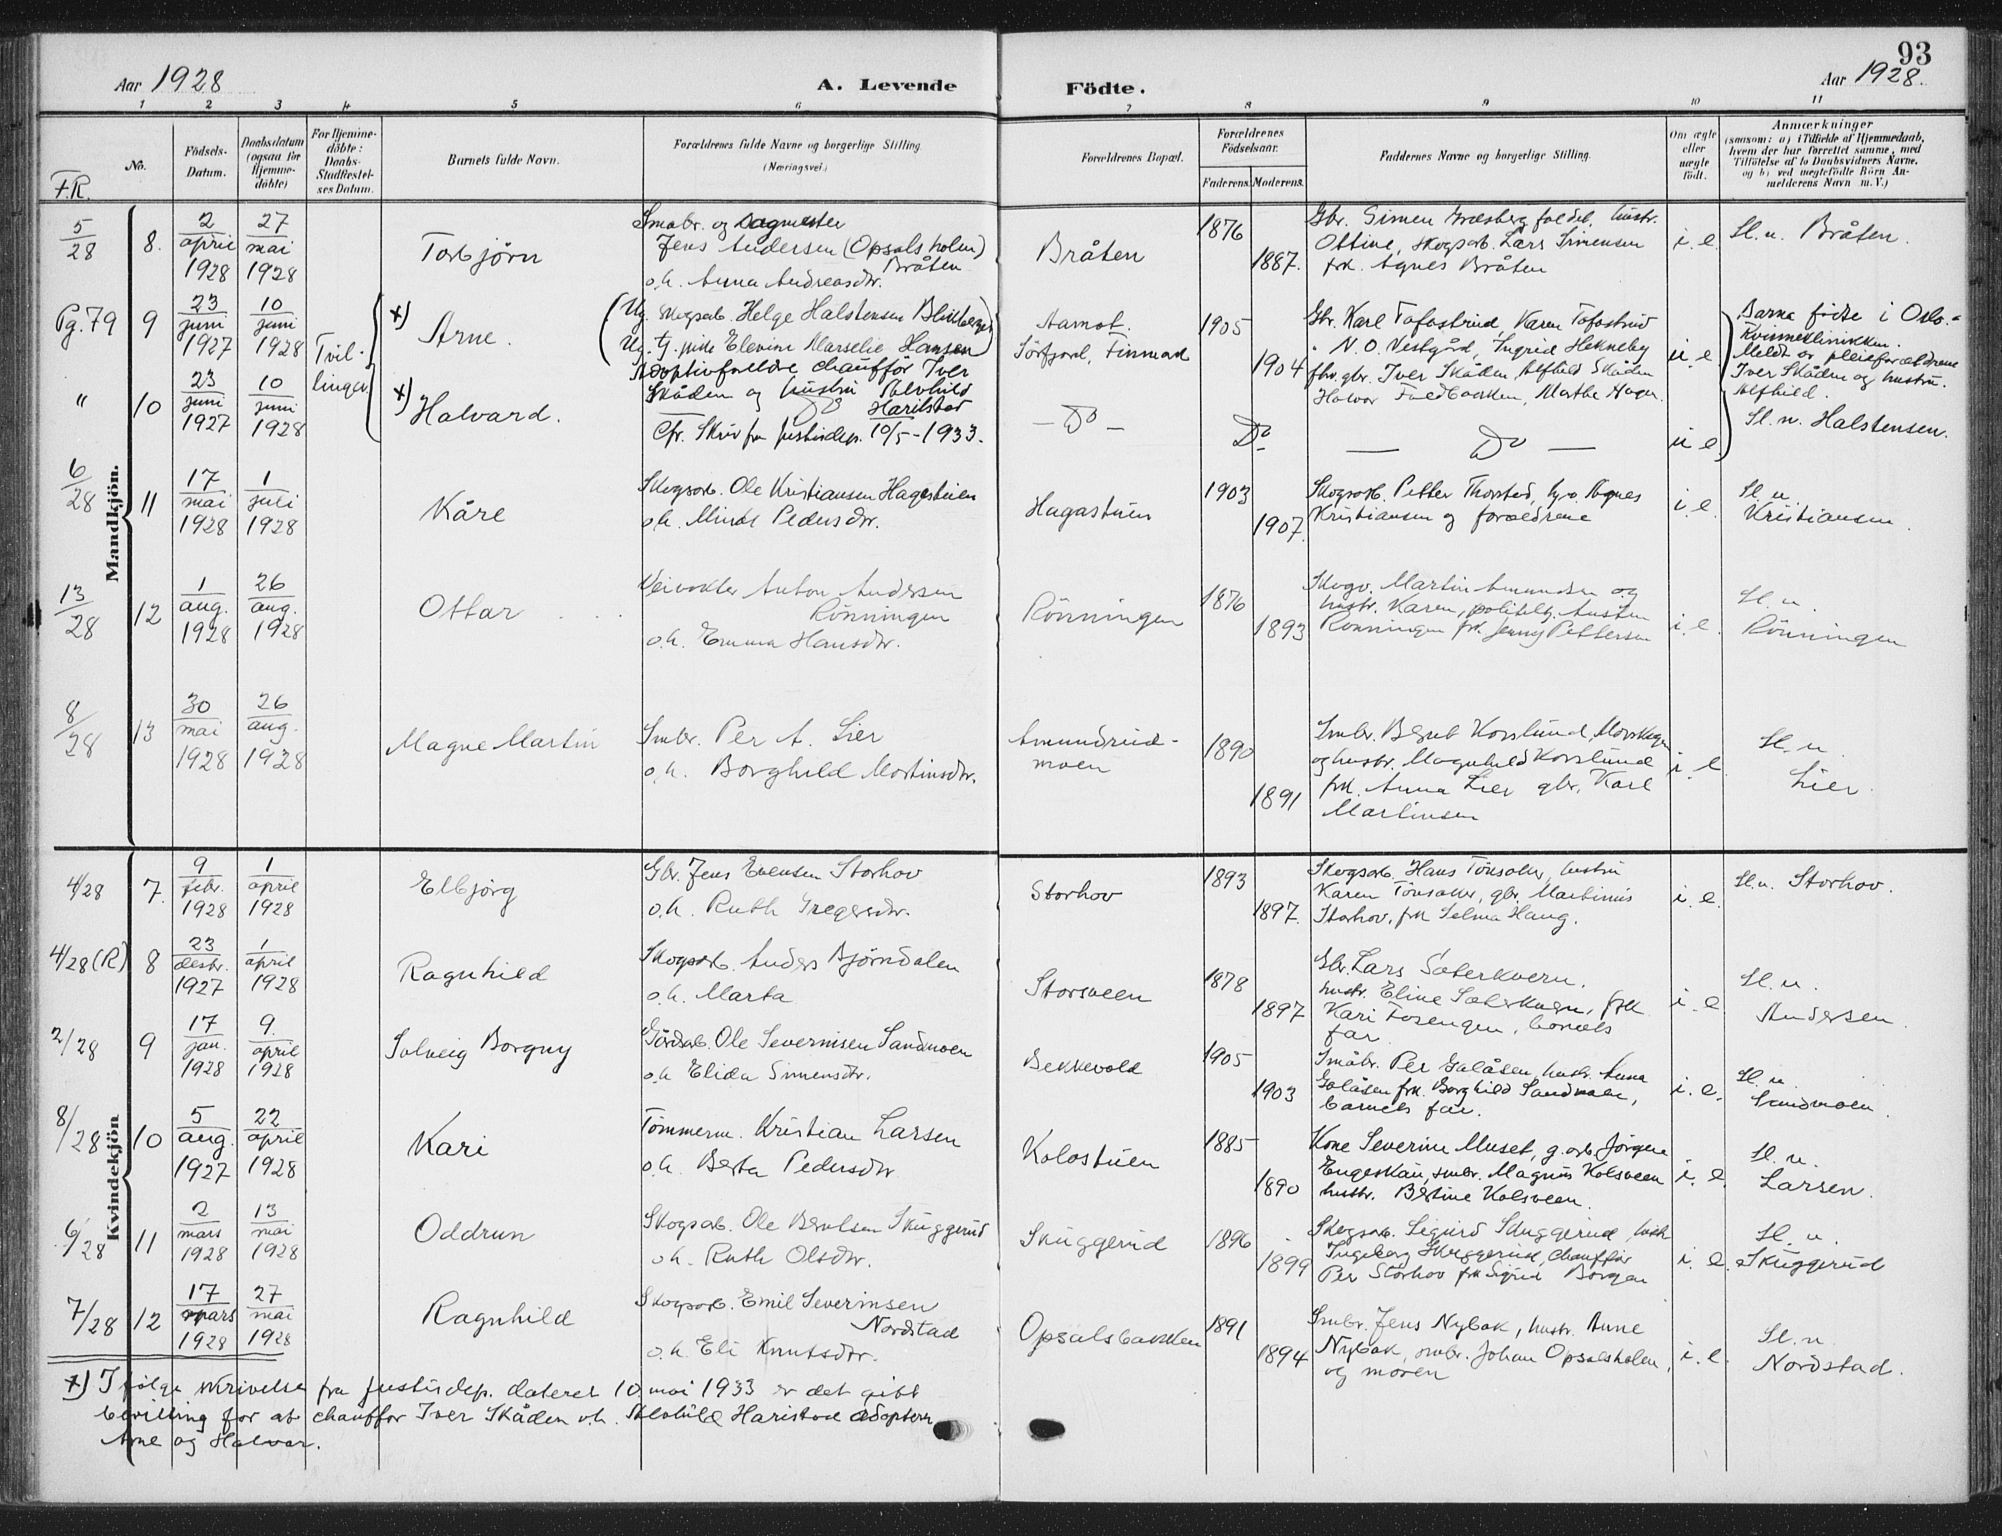 93
Aar 1928
A. Levende
Födte.
Aar 1928.
1 2 3 4 5 6 7 8 9 10 11
F.R.
No.
Födsels-
Datum.
Daabsdatum
(ogsaa for
Hjemme-
döbte)
For Hjemme-
döbte:
Daabs-
Stadfæstel-
ses Datum.
Barnets fulde Navn.
Forældrenes fulde Navne og borgerlige Stilling
(Næringsvei.)
Forældrenes Bopæl.
Forældrenes
Födselsaar.
Faderens. Moderens.
Faddernes Navne og borgerlige Stilling.
Om ægte
eller
uægte
födt.
Anmærkninger
(saasom: a) i Tilfælde af Hjemmedaab,
hvem der har forrettet samme, med
Tilföielse af to Daabsvidners Navne.
og b) ved uægtefödte Börn An-
melderens Navn m. V.)
Mandkjön.
5/28
8.
2
april
1928
27
mai
1928
Torbjörn
Småbr. og
Jens Andersen (Opsalsholm)
Bråten
o.h. Anna Andreasdtr.
Bråten
1876
1887.
Gbr. Simen foldb. hustr.
Ottine, skogsarb. Lars Simensen
frk. Agnes Bråten
i. e.
Sl. n. Bråten.
Pg. 79
9
23
juni
1927
10
juni
1928
Tvil-
linger
x)
Arne.
(Ug. skogsarb. Helge Halstensen
Ug. tj. pike Elevine Marselie Hansen)
Adoptivforeldre chaufför Iver
Skåden og hustru Alvhild
Harilstad
Cfr. Skriv fra justisdep. 10/5-1933.
Aamot.
Sörfjord, Finmark
1905
1904
Gbr. Karl Tofastrud, Karen Tofastrud
N. O. Vestgård, Ingrid Hekneby
fhv. gbr. Iver Skåden, Alfhild Skåden
Halvor Furdbakken, Marthe Hagen.
u e
Barna födte i Oslo.
Kvinneklinikken.
Meldt av pleieforældrene
Iver Skåden og hustru
Alfhild.
Sl. n. Halstensen.
"
10
23
juni
1927
10
juni
1928
x)
Halvard.
Do
— Do —
Do
— Do —
u e
6/28
11
17
mai
1928
1
juli
1928
Kåre
Skogsarb. Ole Kristiansen Hagastuen
o.h. Minda Pedersdtr.
Hagastuen
1903
1907.
Skogsarb. Petter Thorstad, Agnes
Kristiansen og forældrene
i. e.
Sl. n.
Kristiansen.
13/28
12
1
aug.
1928
26
aug.
1928
Ottar
Veivokter Anton Andersen
Rönningen
o.h. Emma Hansdtr.
Rönningen
1876
1893
Skogv. Martin Amundsen og
hustr. Karen, politibtj. Austen
Rönningen frk. Jenny Pettersen
i. e.
Sl. n.
Rönningen
8/28
13
30
mai
1928
26
aug.
1928
Magne Martin
Smbr. Per A. Lier
o.h. Borghild Martinsdtr.
Amundrud-
moen
1890
1891
Smbr. Bernt Korslund, Morskogen
og hustr. Magnhild Korslund
frk. Anna Lier gbr. Karl
Martinsen
i. e.
Sl. n.
Lier.
Kvindekjön
4/28
7.
9
febr.
1928
1
april
1928
Elbjörg
Gbr. Jens Evensen Storhov
o.h. Ruth Gregersdtr.
Storhov
1893
1897.
Skogsarb. Hans Tönsaker, hustru
Karen Tönsaker, gbr. Martinus
Storhov, frk Selma Haug.
i. e.
Sl. n. Storhov.
4/28 (R)
8
23
desbr.
1927
1
april
1928
Ragnhild
Skogsarb. Anders Björndalen
o.h. Marta
Storsveen
1878
1897
Gbr. Lars Säterkvern.
hustr. Eline Säterkvern, frk
Kari Fosengen, barnets
far
i. e
Sl. n.
Andersen.
2/28
9
17
jan.
1928
9.
april
1928
Solveig Borgny
Gårdsb. Ole Severinsen Sandmoen
o.h Elida Simensdtr.
Bekkevold
1905
1903
Småbr. Per Galåsen, hustr. Anna
Galåsen frk. Borghild Sandmoen,
barnets far.
i. e.
Sl. n.
Sandmoen.
8/28
10
5
aug.
1927
22
april
1928
Kari
Tömmerm. Kristian Larsen
o.h. Berta Pedersdtr.
Kolostuen
1885
1890
Kone Severine Muset, g.arb. Jörgen
Engeskau, smbr. Magnus Kolsveen
hustr. Bertine Kolsveen.
i. e.
Sl. n.
Larsen.
6/28
11
2
mars
1928
13
mai
1928
Oddrun
Skogsarb. Ole Berntsen Skuggerud
o.h. Ruth Olsdtr.
Skuggerud
1896
1899
Skogsarb. Sigurd Skuggerud, hustr.
Ingeborg Skuggerud, chaufför
Per Storhov frk Sigrid Borgen
i. e.
Sl. n.
Skuggerud
7/28
12
17
mars
1928
27
mai
1928
Ragnhild
Skogsarb. Emil Severinsen
Nordstad
o.h. Eli Knutsdtr.
Opsalsbakken
1891
1894
Smbr. Jens Nybak, hustr. Anne
Nybak, smbr. Johan Opsalsholm,
og moren
i. e.
Sl. n.
Nordstad.
x) I fölge skrivelse fra justisdep. dateret 10. mai 1933 er det gitt
bevilling for at chaufför Iver Skåden o.h. Alvhild Haristad adopterer
Arne og Halvar.